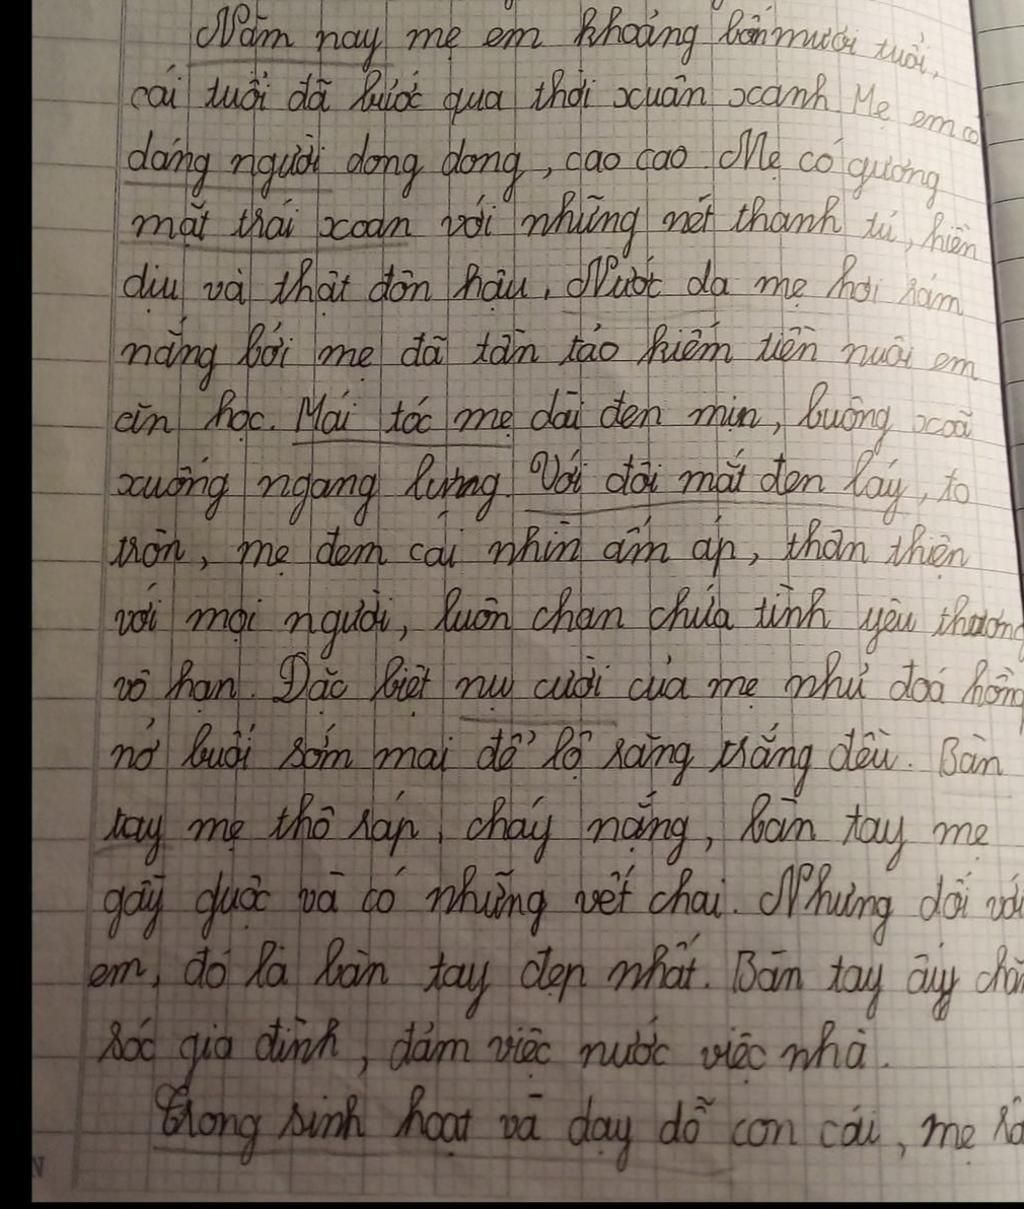 Năm nay mẹ em khoảng bốn mươi tuổi,
cái tuổi đã bước qua thời xuân xanh. Mẹ em có
dáng người dong dong, cao cao. Mẹ có gương
mặt trái xoan với những nét thanh tú, hiền
dịu và thật đôn hậu. Nước da mẹ hơi rám
nắng bởi mẹ đã tần tảo kiếm tiền nuôi em
ăn học. Mái tóc mẹ dài đen mịn, buông xoã
xuống ngang lưng. Với đôi mắt đen láy, to
tròn, mẹ đem cái nhìn ấm áp, thân thiện
với mọi người, luôn chan chứa tình yêu thương
vô hạn. Đặc biệt nụ cười của mẹ như đoá hồng
nở buổi sớm mai để lộ răng trắng đều. Bàn
tay mẹ thô ráp, cháy nắng, bàn tay mẹ
gầy guộc và có những vết chai. Nhưng đối với
em, đó là bàn tay đẹp nhất. Bàn tay ấy
sóc gia đình, đảm việc nước việc nhà.
Trong sinh hoạt và dạy dỗ con cái, mẹ